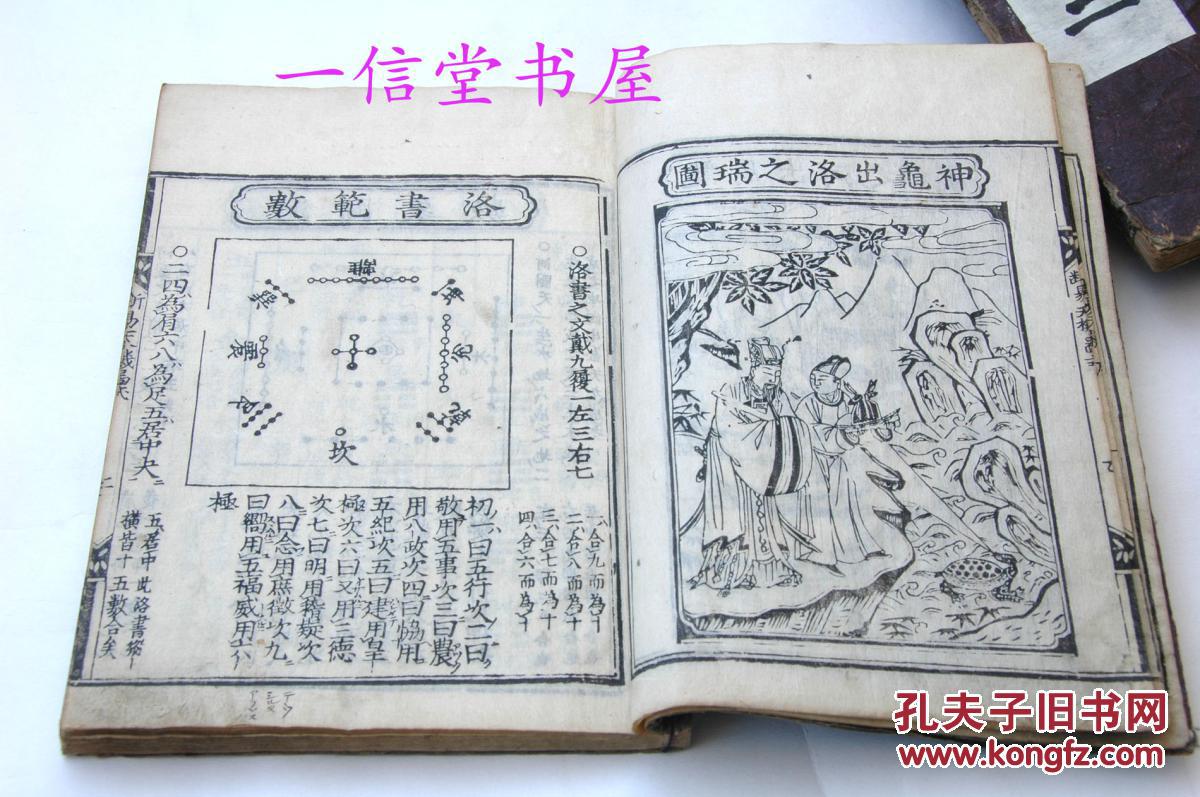 一信堂书屋
二
神龜出洛之瑞圖
洛書範數
○洛書之文戴九履一左三右七
一合九而為十
二合八而為十
三合七而為十
四合六而為十
離
坤
兌
乾
坎
艮
震
巽
初一曰五行次二曰
敬用五事次三曰農
用八政次四曰協用
五紀次五曰建用皇
極次六曰又用三德
次七曰明用稽疑次
八曰念用庶徵次九
曰嚮用五福威用六
極
○二四為肩六八為足五居中央
五居中此洛書縱
橫皆十五數合矣
孔夫子旧书网
www.kongfz.com